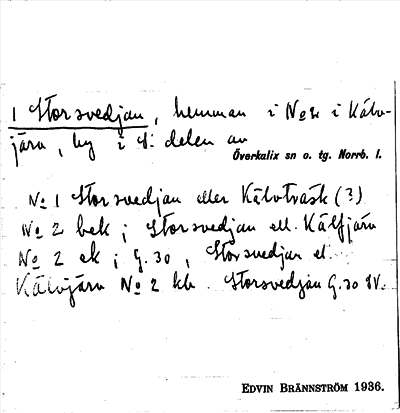 1 Storsvedjan, hemman i No 2 i Kälv-
järn, by i S: delen av
Överkalix sn o. tg. Norrb. l.
No 1 Storsvedjan eller Kälvträsk (?)
No 2 bek ; Storsvedjan ell. Kälfjärn
No 2 ek ; G. 30 , Storsvedjan el.
Kälvjärn No 2 kb . Storsvedjan G. 30 SV.
EDVIN BRÄNNSTRÖM 1936.